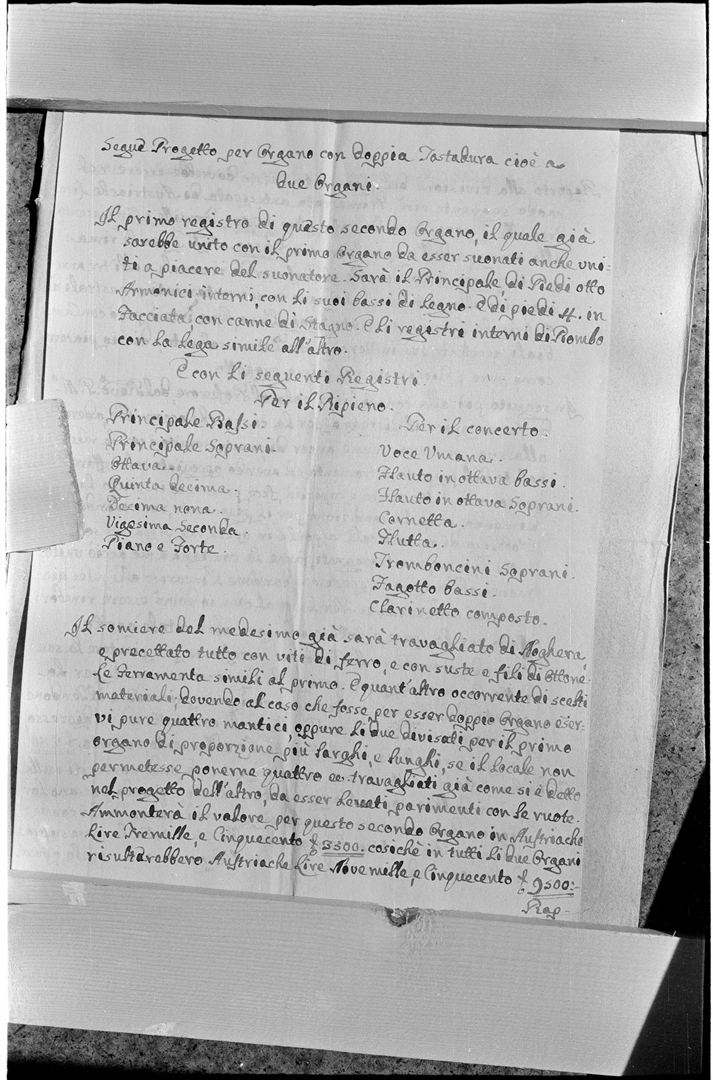 Segue Progetto per Organo con doppia Tastadura cioè a
due Organi.
Il primo registro di questo secondo Organo, il quale già
sarebbe unito con il primo Organo da esser suonati anche uni-
ti a piacere del suonatore. Sarà il Principale di Piedi otto
Armonici interni, con li suoi bassi di Legno. E di piedi 4. in
Facciata, con canne di Stagno. E li registri interni di Piombo
con la Lega simile all'altro.
E con li seguenti Registri.
Per il Ripieno.
Principale Bassi.
Principale Soprani.
Ottava.
Quinta decima.
Decima nona.
Vigesima Seconda.
Piano e Forte.
Per il concerto.
Voce Umana.
Flauto in ottava bassi.
Flauto in ottava Soprani.
Cornetta.
Flutta.
Tromboncini Soprani.
Fagotto bassi.
Clarinetto composto.
Il somiere del medesimo già sarà travagliato di Noghera,
e precettato tutto con viti di ferro, e con suste e fili di Ottone
le Ferramenta simili al primo. E quant'altro occorrente di scelti
materiali; dovendo al caso che fosse per esser doppio Organo esser-
vi pure quattro mantici, oppure li due divisati per il primo
organo di proporzione più larghi, e lunghi, se il locale non
permetesse ponerne quattro travagliati già come si è detto
nel progetto dell'altro, da esser levati parimenti con le ruote.
Ammonterà il valore per questo secondo Organo in Austriache
Lire Tremille, e Cinquecento £ 3500. cosichè in tutti li due Organi
risultarebbero Austriache Lire Novemille, e Cinquecento £ 9500:-
Rap-